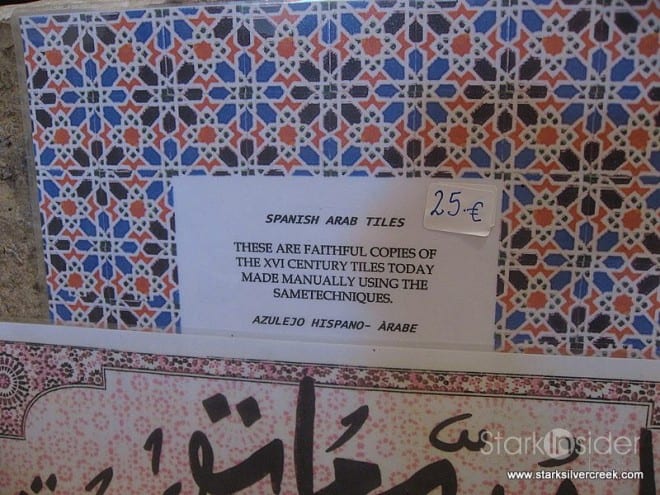 25.€
SPANISH ARAB TILES
THESE ARE FAITHFUL COPIES OF
THE XVI CENTURY TILES TODAY
MADE MANUALLY USING THE
SAMETECHNIQUES.
AZULEJO HISPANO- ÀRABE
StarkInsider
www.starksilvercreek.com